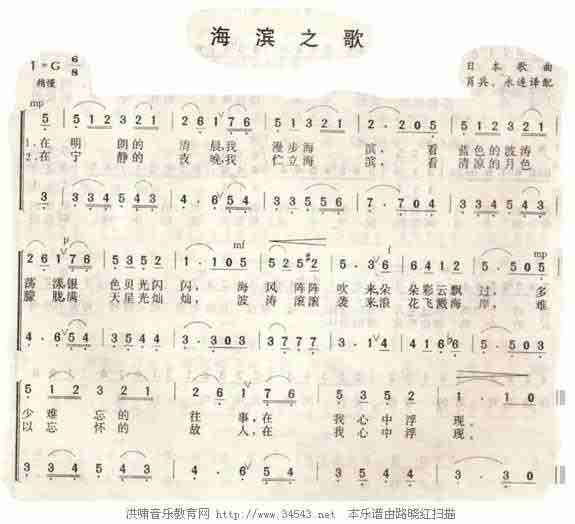 海滨之歌
1=G 6/8
日本歌曲
稍慢
肖兴、永连译配
mp
5 | 5 1 2 3 2 1 | 2 6 1 7 6 | 5 1 2 3 2 1 | 2 . 2 0 5 | 5 1 2 3 2 1 |
1.在 明 朗的 清晨,我 漫步海 滨, 看 蓝色的波涛
2.在 宁 静的 夜晚,我 伫立海 滨, 看 清凉的月色
3 | 3 4 5 4 3 | 4 . 6 5 4 | 3 4 5 4 3 | 7 . 7 0 4 | 3 4 5 4 3 |
p mf f mp
2 6 1 7 6 | 5 1 2 3 2 1 | 1 . 1 0 5 | 5 2 5 5 2 | 3 . 1 4 | 4 3 1 2 6 1 | 5 . 5 0 5 |
荡漾,银 色贝光闪 闪, 海 风阵阵 吹来朵 朵彩云飘 过, 多
朦胧,满 天星光灿 灿, 波 涛滚滚 袭来,浪 花飞溅海 岸, 难
4 . 6 5 4 | 3 4 5 4 3 | 3 . 3 0 3 |
5 1 2 3 2 1 | 2 6 1 7 6 | 5 3 5 2 | 1 . 1 0
少难忘的 往 事,在 我心中浮 现。
以忘怀的 故 人,在 我心中浮 现。
3 3 4 5 4 3 | 4 . 6 5 4 | 3 . 3 0
洪啸音乐教育网 http://www.34543.net 本乐谱由路晓红扫描